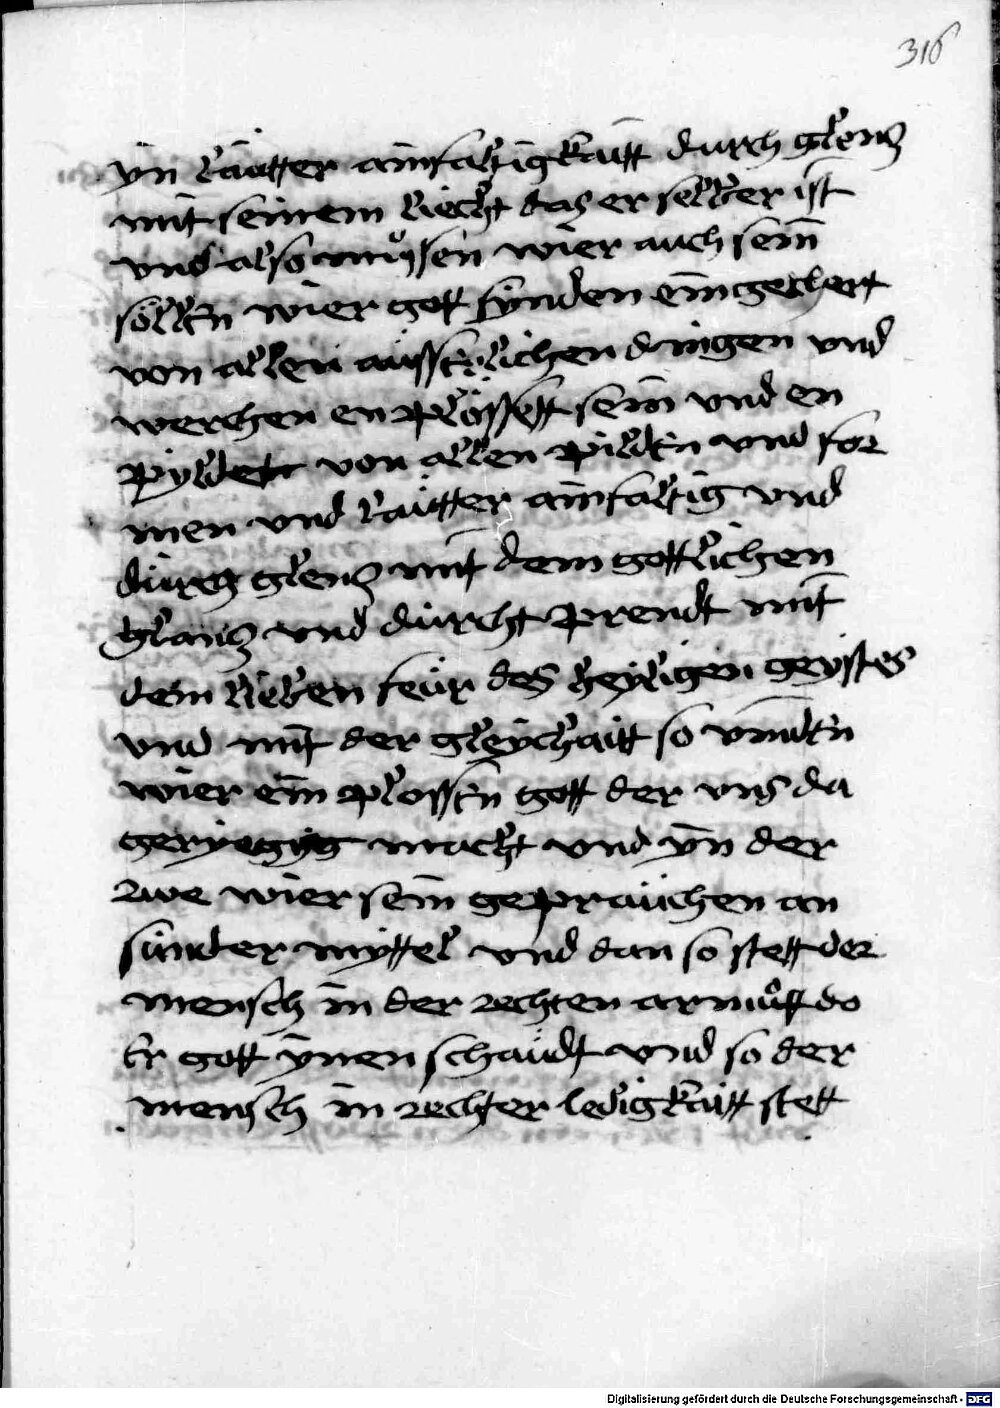 316
ÿn lautter ainfaltigkaitt durch glencz
mit seinem liecht das er selber ist
vnd also müssen wier auch sein
söllen wier gott fynden ein gechert
von allen ausserlichen dringen vnd
werchen en plössett sein vnd en
pyldett von allen pilden vnd for
men vnd lautter ainfaltig vnd
durch glencz mit dem gottlichen
glancz vnd durcht prendt mit
dem lieben feür des heyligen geystes
vnd mit der gleychaitt so vinden
wier ein plossen gott der vns da
macht vnd ÿn der
rwe wier sein gepraüchen an
sunder myttel vnd dan so stett der
mensch in der rechten armütt do
er gott ÿnen schaüdt vnd so der
mensch in rechter ledigkaitt stett
Digitalisierung gefördert durch die Deutsche Forschungsgemeinschaft - DFG